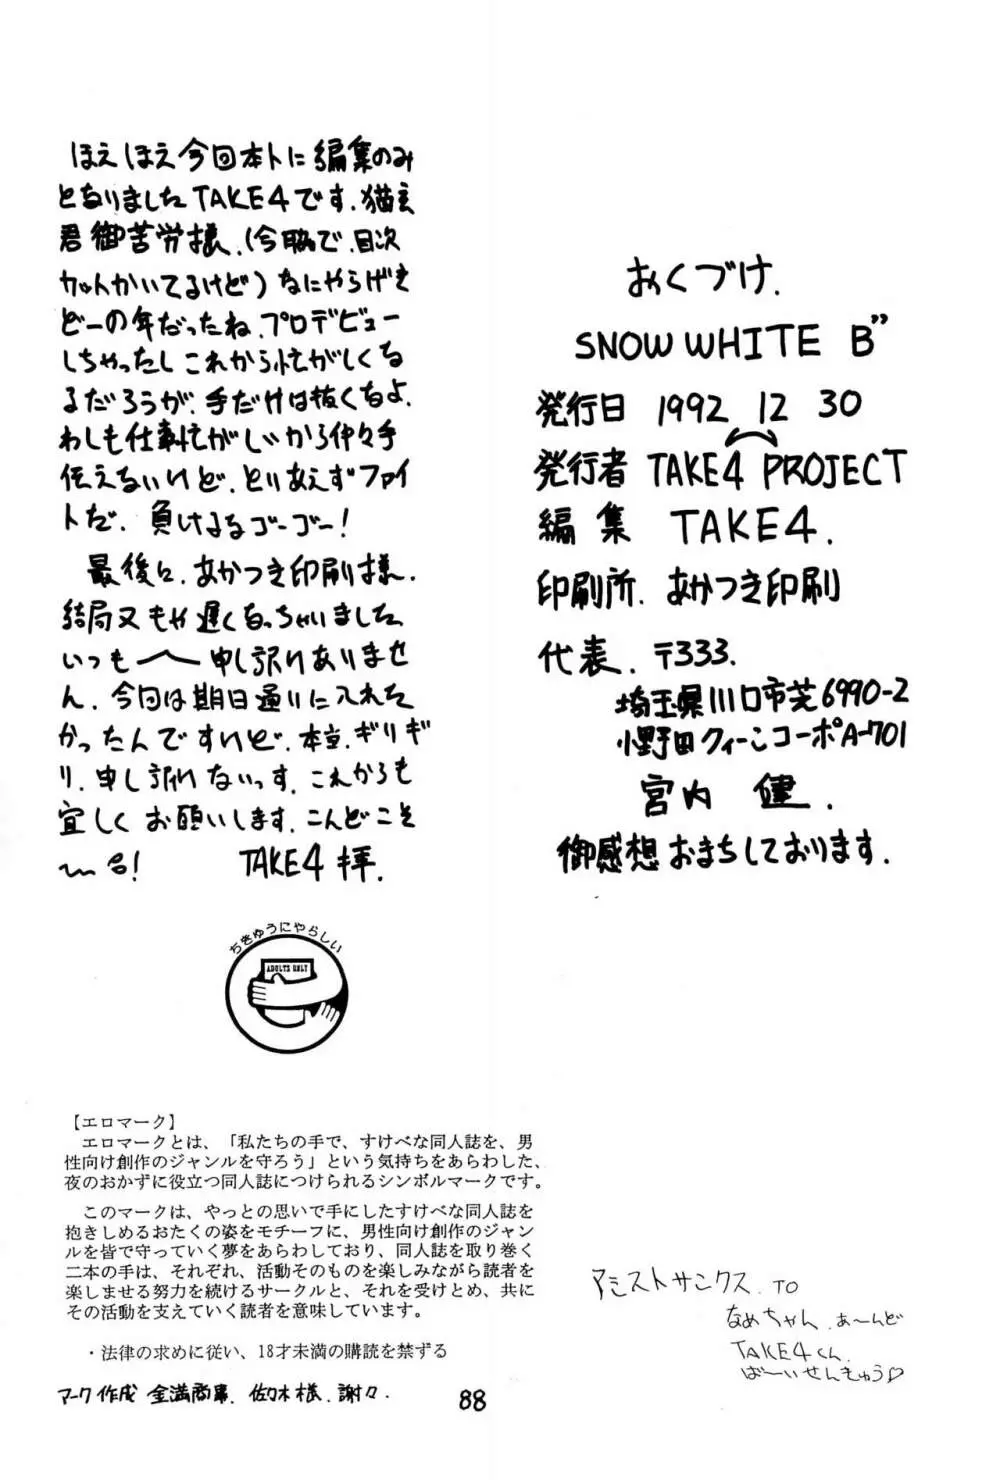 ほえほえ今回本トに編集のみ
となりましたTAKE4です.猫玄
君御苦労様.(今脇で.目次
カットかいてるけど)なにやらげき
どーの年だったね.プロデビュー
しちゃったしこれから忙がしくな
るだろうが.手だけは抜くなよ.
わしも仕事忙がしいから仲々手
伝えないけど.とりあえずファイ
トだ.負けるなゴーゴー!
最後に.あかつき印刷様.
結局又もや遅くなっちゃいました
いつも 申し訳ありませ
ん.今回は期日通りに入れた
かったんですけど.本当.ギリギ
リ.申し訳ないっす.これからも
宜しくお願いします.こんどこそ
〜る!
TAKE4拝.
ちきゅうにやらしい
ADULTS ONLY
【エロマーク】
エロマークとは、「私たちの手で、すけべな同人誌を、男
性向け創作のジャンルを守ろう」という気持ちをあらわした、
夜のおかずに役立つ同人誌につけられるシンボルマークです。
このマークは、やっとの思いで手にしたすけべな同人誌を
抱きしめるおたくの姿をモチーフに、男性向け創作のジャン
ルを皆で守っていく夢をあらわしており、同人誌を取り巻く
二本の手は、それぞれ、活動そのものを楽しみながら読者を
楽しませる努力を続けるサークルと、それを受けとめ、共に
その活動を支えていく読者を意味しています。
・法律の求めに従い、18才未満の購読を禁ずる
マーク作成 金満商事.佐々木様.謝々.
おくづけ.
SNOW WHITE B”
発行日 1992 12 30
発行者 TAKE4 PROJECT
編集 TAKE4.
印刷所.あかつき印刷
代表.〒333.
埼玉県川口市芝6990-2
小野田クィーンコーポA-701
宮内 健.
御感想おまちしております.
アシストサンクス.TO
なめちゃん.あ〜んど
TAKE4くん.
ば〜いせんきゅう♡
88